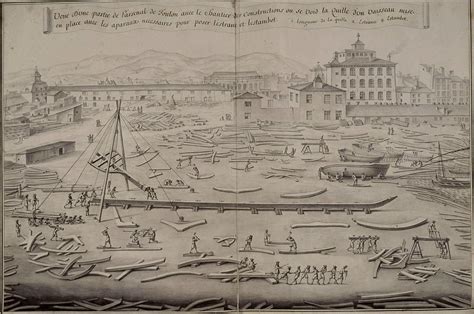 Veüe d'une partie de l'arsenal de Toulon avec le Chantier des Constructions ou se Void la Quille d'un Vaisseau mise
en place avec les aparaux necessaires pour poser lestrave et lestambot 1. longueur de la quille 2. Lestrave 3 Lestambot.